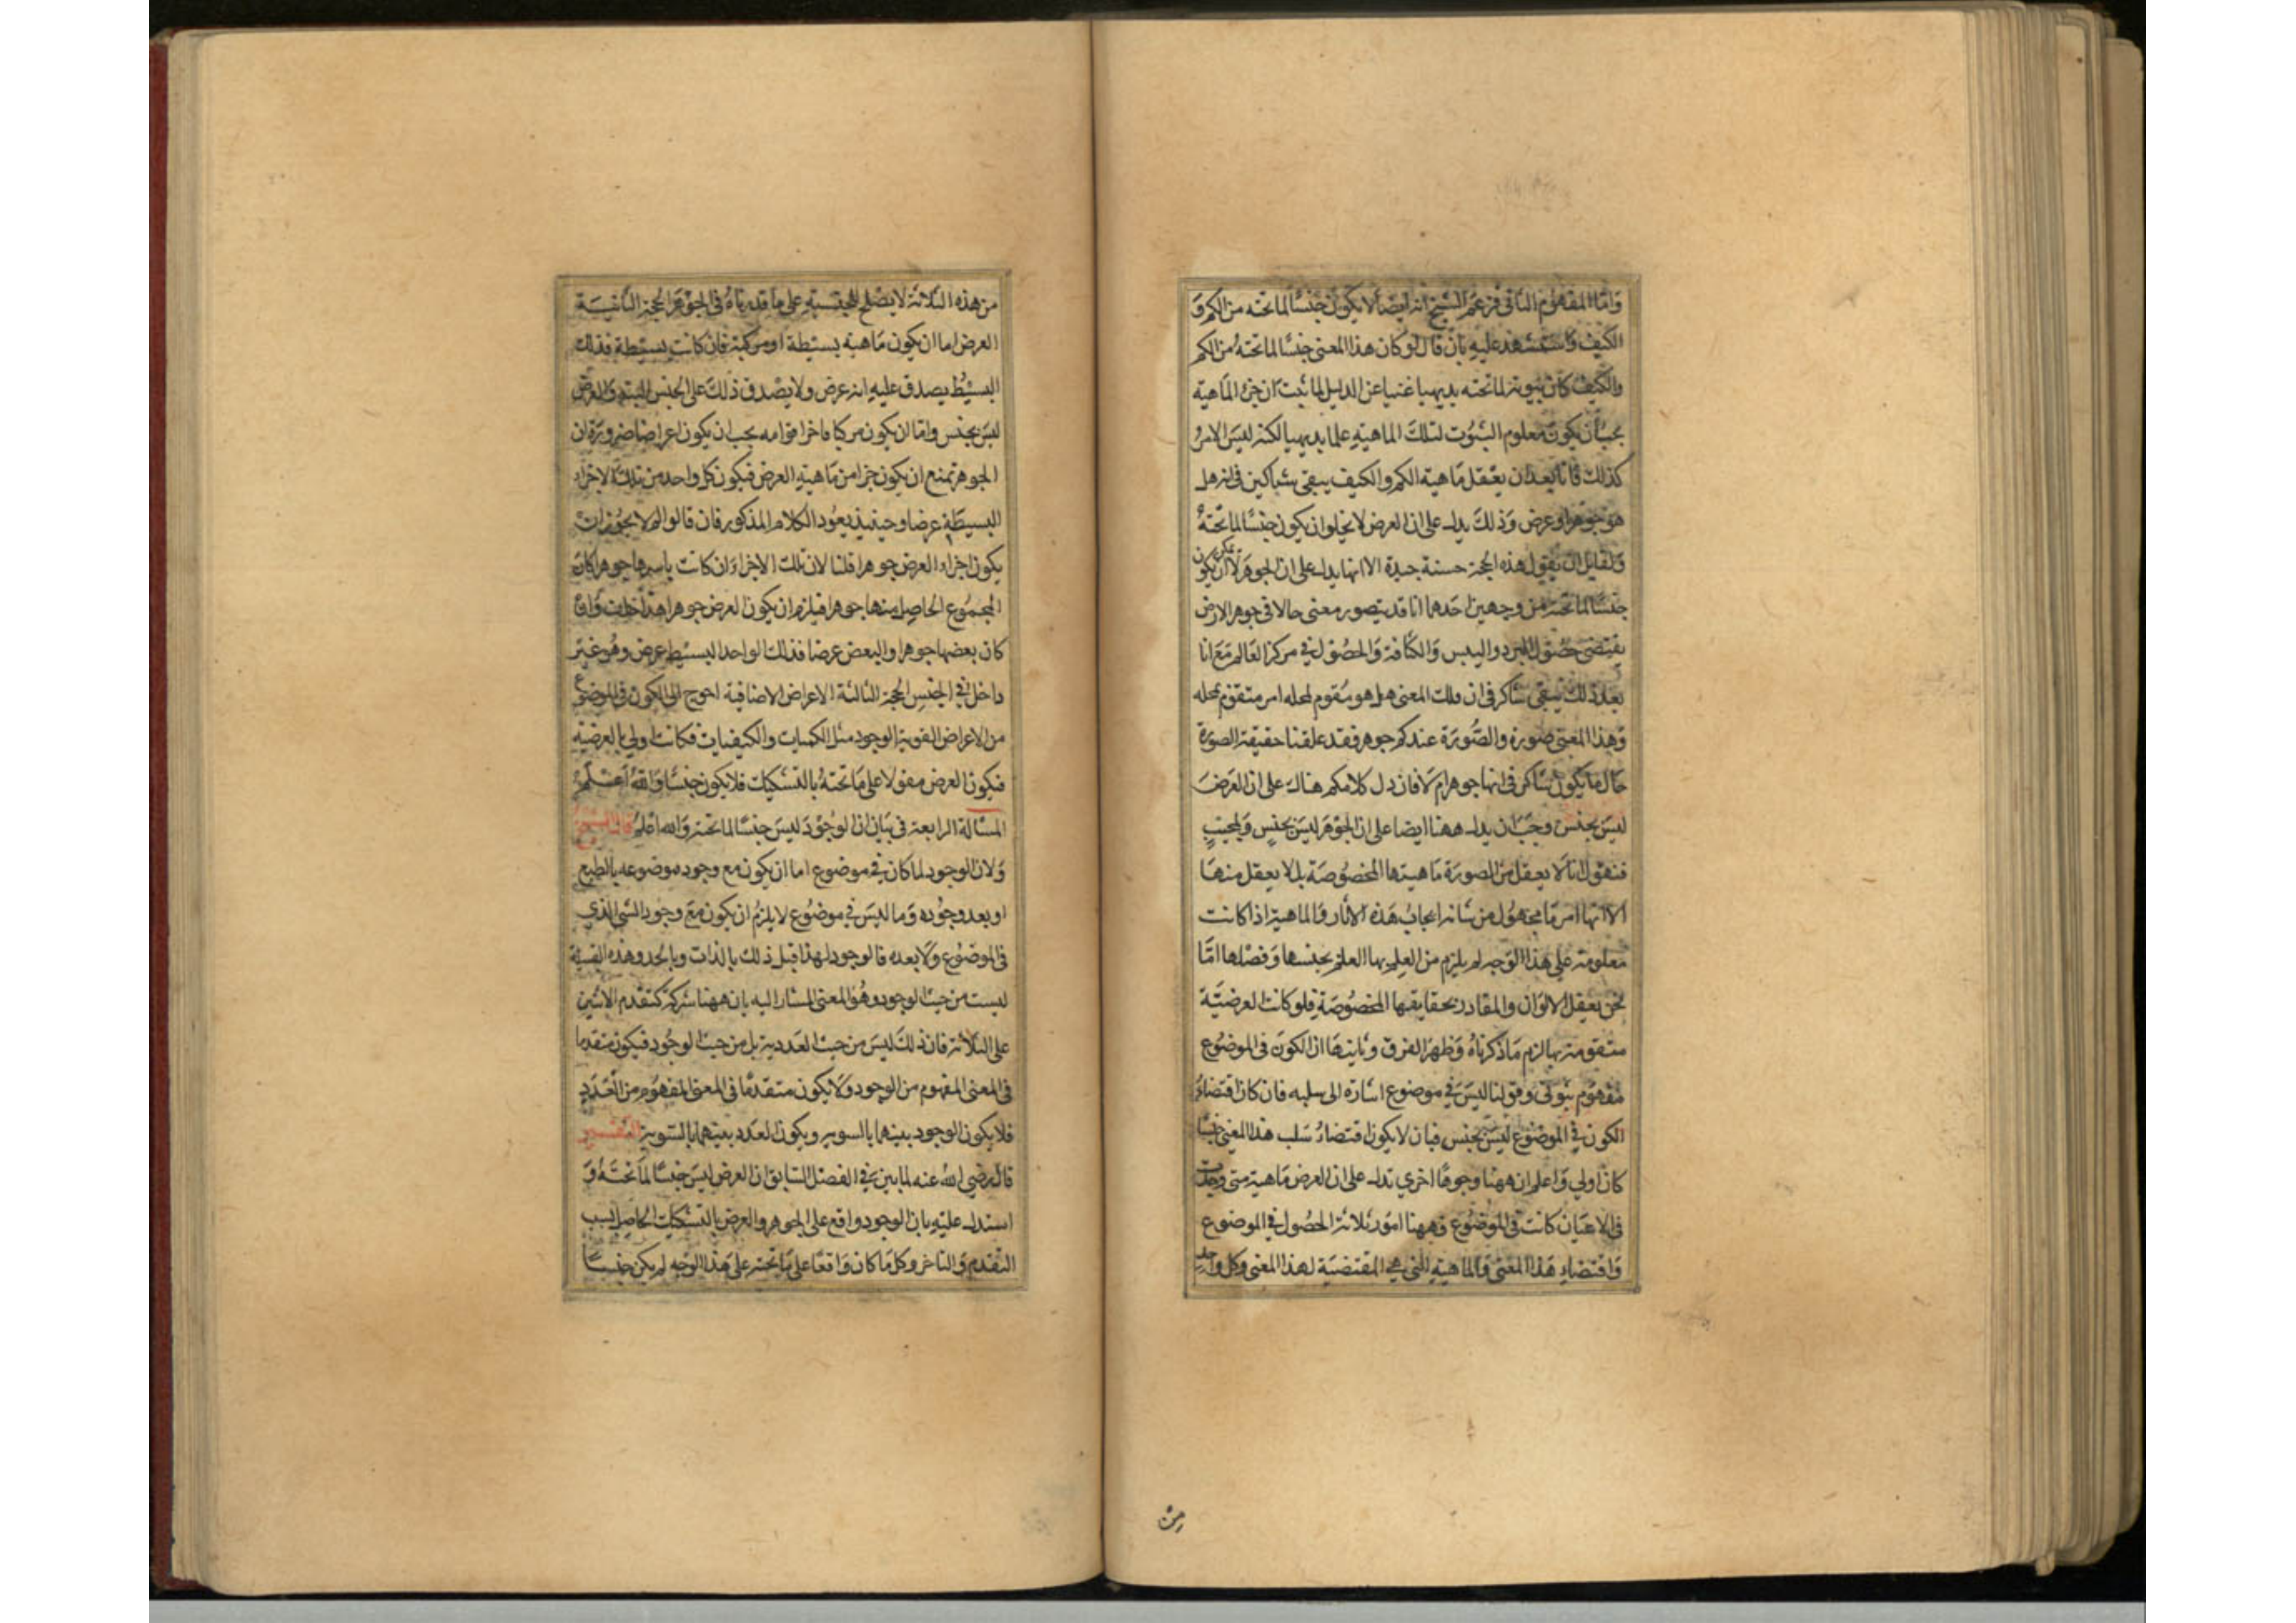 واما المفهوم الثاني فزعم الشيخ انه ايضا لا يكون جنسا لما تحته من الكم و
الكيف واستشهد عليه بان قال لو كان هذا المعنى جنسا لما تحته من الكم
والكيف كان ثبوته لما تحته بديهيا غنيا عن الدليل لما ثبت ان جزء الماهية
يجب ان يكون معلوم الثبوت لتلك الماهية علما بديهيا لكنه ليس الامر
كذلك فانا بعد ان يعقل ماهية الكم والكيف يبقى شاكين في انه هل
هو جوهر او عرض وذلك يدل على ان العرض لا يخلو ان يكون جنسا لما تحته
ولقايل ان يقول هذه الحجة حسنة جيدة الا انها يدل على ان الجوهر لا يمكن ان يكون
جنسا لما تحته من وجهين احدهما انا قد يتصور معنى حالا في جوهر الارض
يقتضى حصول البرد واليبس والكثافة والحصول في مركز العالم مع انا
بعد ذلك يبقى شاكر في ان تلك المعنى هل هو مقوم لمحله ام متقوم بمحله
وهذا المعنى صورة والصورة عندكم جوهر فقد علقنا حقيقة الصورة
حال ما يكون شاكر في انها جوهر ام لا فان دل كلامكم هناك على ان العرض
ليس بجنس وجب ان يدل ههنا ايضا على ان الجوهر ليس بجنس ولمجيب
فنقول انا لا يعقل من الصورة ماهيتها المخصوصة بل لا يعقل منها
الا انها امر ما مجهول من شانه ايجاب هذه الاثار فالماهية اذا كانت
معلومة على هذا الوجه لم يلزم من العلم بها العلم بجنسها وفصلها امّا
نحن يعقل الالوان والمقادر بحقايقها المخصوصة فلو كانت العرضية
متقومة بها لزم ما ذكرناه وظهر الفرق وثانيها ان الكون في الموضوع
مفهوم ثبوتى وقولنا ليس في موضوع اشارة الى سلبه فان كان اقتضاء
الكون في الموضوع ليس بجنس فبان لا يكون اقتضاء سلب هذا المعنى جنسا
كان اولى واعلم ان ههنا وجوها اخرى تدل على ان العرض ماهية متى وجدت
في الاعيان كانت في الموضوع فههنا امور ثلاثة الحصول في الموضوع
واقتضاء هذا المعنى والماهية التي هي المقتضية لهذا المعنى وكل واحد
من
من هذه الثلاثة لا يصلح للجنسية على ما قدرناه في الجوهر الحجة الثانية
العرض اما ان يكون ماهية بسيطة او مركبة فان كانت بسيطة فذلك
البسيط يصدق عليه انه عرض ولا يصدق ذلك على الجنس البتة والعرض
ليس بجنس واما ان يكون مركبا فاجزا قوامه يجب ان يكون اعراضا ضرورة ان
الجوهر يمتنع ان يكون جزا من ماهية العرض فيكون كل واحد من تلك الاجزاء
البسيطة عرضا وحينيذ يعود الكلام المذكور فان قالوا لم لا يجوز ان
يكون اجزاء العرض جوهرا قلنا لان تلك الاجزاء ان كانت باسرها جوهرا كان
المجموع الحاصل منها جوهرا فيلزم ان يكون العرض جوهرا هذا خلف وان
كان بعضها جوهرا والبعض عرضا فذلك الواحد البسيط عرض وهو غير
داخل في الجنس الحجة الثالثة الاعراض الاضافية احوج الى الكون في الموضوع
من الاعراض القوية الوجود مثل الكميات والكيفيات فكانت اولى بالعرضية
فيكون العرض مقولا على ما تحته بالتشكيك فلا يكون جنسا والله اعلم
المسالة الرابعة في بيان ان الوجود ليس جنسا لما تحته والله اعلم قال الشيخ
ولان الوجود لما كان في موضوع اما ان يكون مع وجود موضوعه بالطبع
او بعد وجوده وما ليس في موضوع لا يلزم ان يكون مع وجود الشي الذي
في الموضوع ولا بعده فالوجود لهذا قبل ذلك بالذات وبالحد وهذه القبلية
ليست من حيث الوجود وهو المعنى المشار اليه بان ههنا شركة كتقدم الاثنين
على الثلاثة فان ذلك ليس من حيث العددية بل من حيث الوجود فيكون متقدما
في المعنى المفهوم من الوجود ولا يكون متقدما في المعنى المفهوم من العدد
فلا يكون الوجود بينهما بالسوية ويكون العدد بينهما بالسوية التفسير
قال رضي الله عنه لما بين في الفصل السابق ان العرض ليس جنسا لما تحته و
استدل عليه بان الوجود واقع على الجوهر والعرض بالتشكيك الحاصل بسبب
التقدم والتاخر وكل ما كان واقعا على ما تحته على هذا الوجه لم يكن جنسا